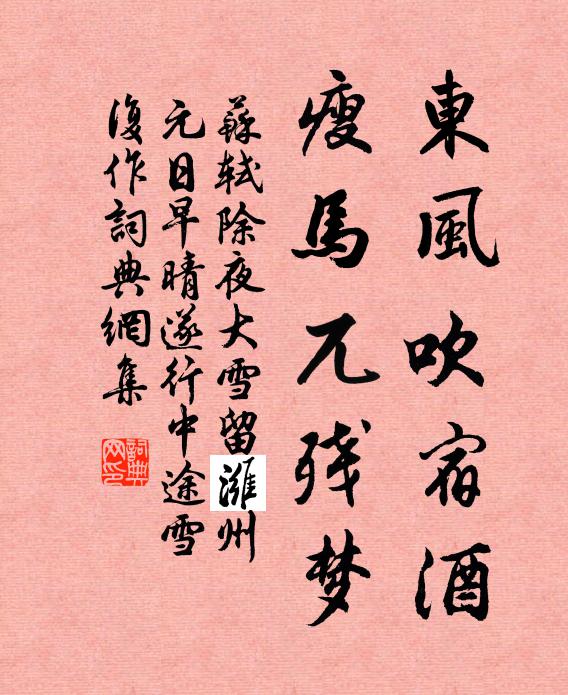 東風吹宿酒
瘦馬兀残梦
蘇軾除夜大雪留濰州
元日早晴遂行中途雪
復作詞典網集
詞典网印